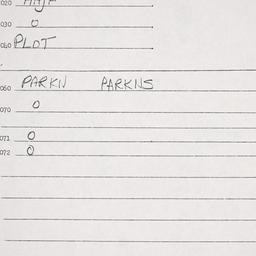 020
030 0
040 PLOT
060 PARKN PARKNS
070 0
071 0
072 0